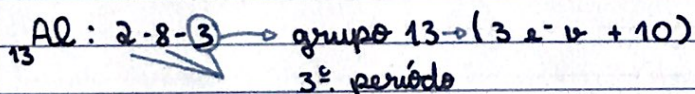 ₁₃Al: 2-8-3 → grupo 13 → (3 e⁻ v + 10)
3º. período